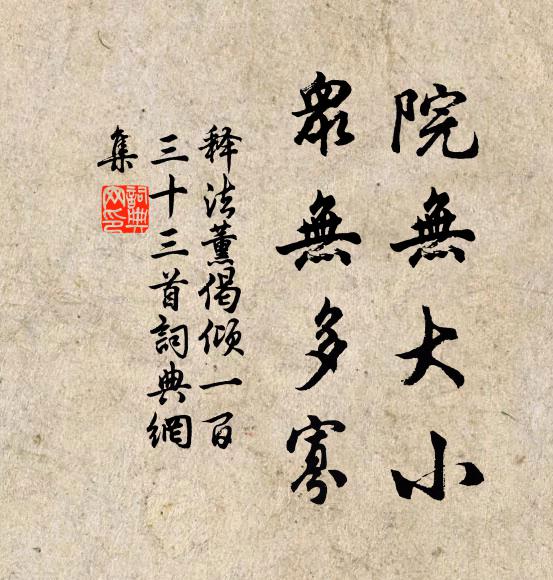 院無大小
衆無多寡
释法薰偈倾一百
三十三首詞典網
集
詞典網印